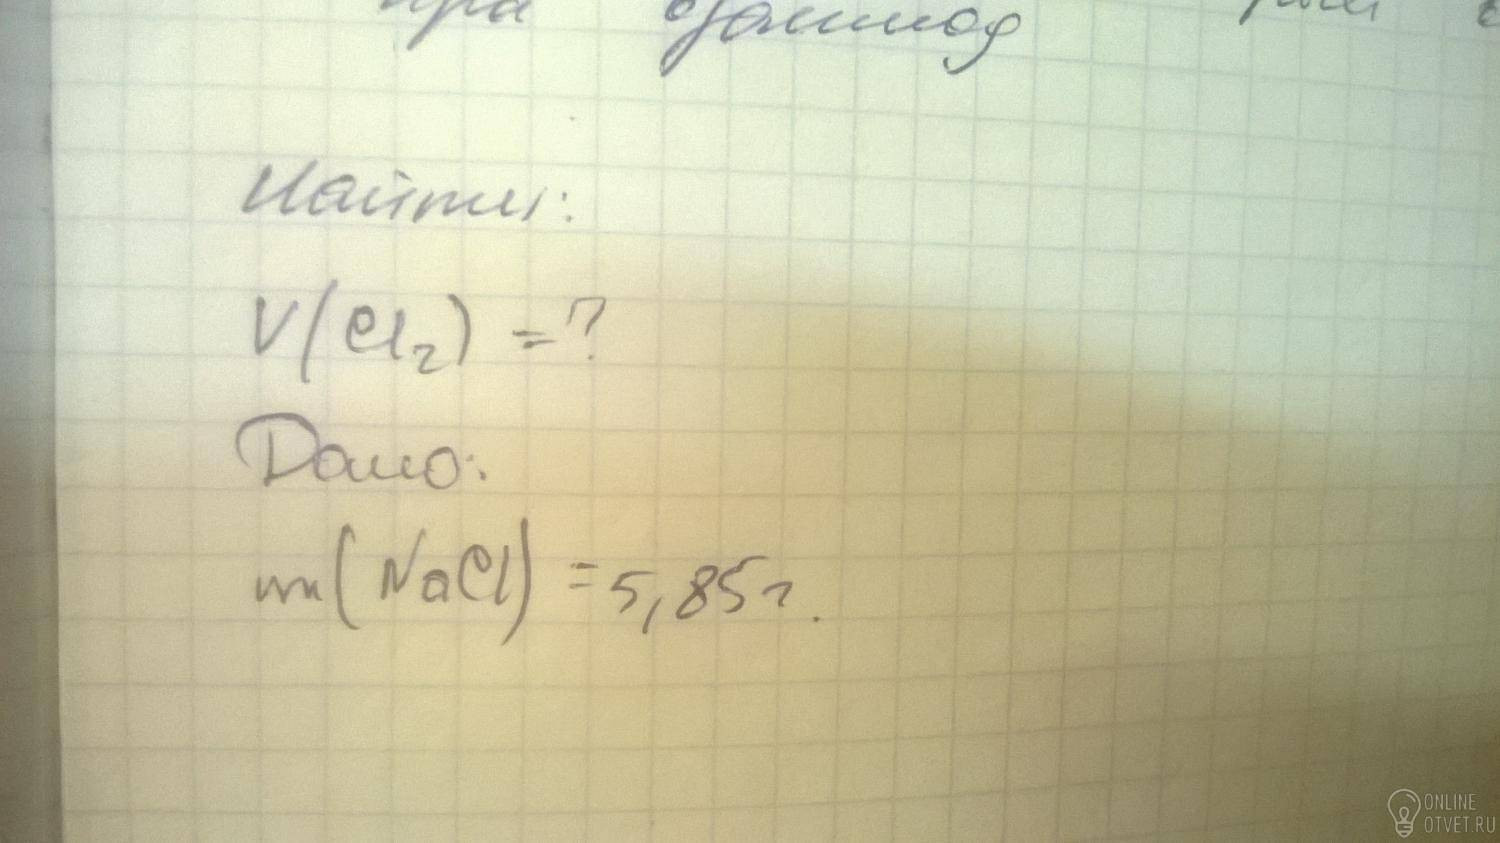 Найти:
V(Cl₂) = ?
Дано:
m(NaCl) = 5,85г.
ONLINE
OTVET.RU